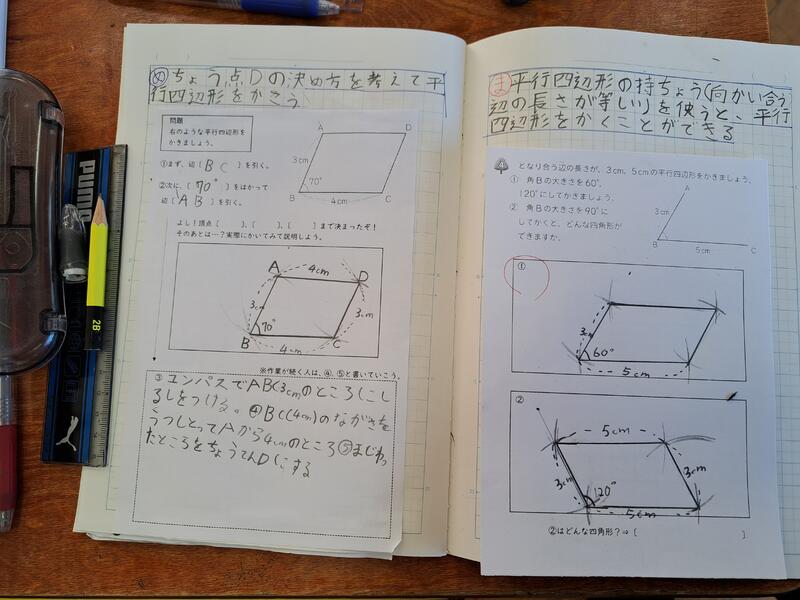 め ちょう点Dの決め方を考えて平
行四辺形をかこう
問題
右のような平行四辺形を
かきましょう。
①まず、辺〔BC〕を引く。
②次に、〔70°〕をはかって
辺〔AB〕を引く。
A
D
3cm
70°
B
4cm
C
よし！頂点〔　〕、〔　〕、〔　〕まで決まったぞ！
そのあとは…？実際にかいてみて説明しよう。
A
4cm
D
3cm
3cm
70°
B
4cm
C
※作業が続く人は、④、⑤と書いていこう。
③コンパスでAB(3cm)のところにし
るしをつける。④BC(4cm)のながさを
うつしとってAから4cmのところ⑤まじわっ
たところをちょうてんDにする
PUMA
2B
ま 平行四辺形の持ちょう(向かい合う
辺の長さが等しい)を使うと、平行
四辺形をかくことができる
となり合う辺の長さが、3cm、5cmの平行四辺形をかきましょう。
① 角Bの大きさを60°、
120°にしてかきましょう。
② 角Bの大きさを90°に
してかくと、どんな四角形が
できますか。
A
3cm
B
5cm
C
①
3cm
60°
5cm
②
5cm
3cm
3cm
120°
5cm
②はどんな四角形？⇒〔　〕